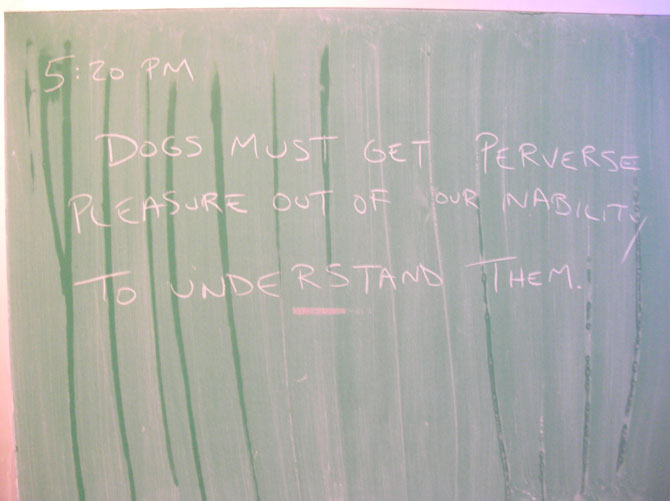 5:20 PM
DOGS MUST GET PERVERSE
PLEASURE OUT OF OUR INABILITY
TO UNDERSTAND THEM.